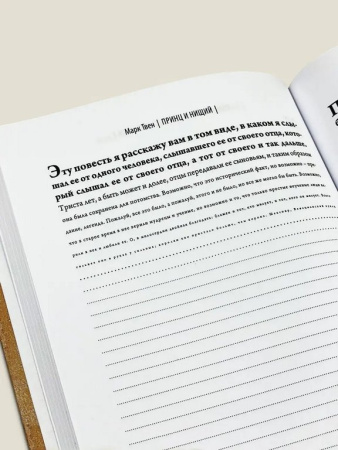 Марк Твен | ПРИНЦ И НИЩИЙ |
Эту повесть я расскажу вам в том виде, в каком я слы-
шал ее от одного человека, слышавшего ее от своего отца, кото-
рый слышал ее от своего отца, а тот от своего и так дальше.
Триста лет, а быть может и долее, отцы передавали ее сыновьям, и таким образом
она была сохранена для потомства. Возможно, что это исторический факт, но возможно – пре-
дание, легенда. Пожалуй, все это было, а пожалуй, этого и не было, но все же могло бы быть. Возможно,
что в старое время в нее верили мудрецы и ученые, но возможно и то, что только простые неученые люди ве-
рили в нее и любили ее.